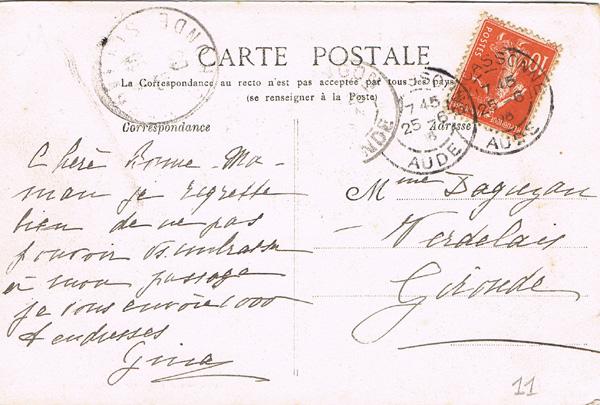 CARTE POSTALE
La Correspondance au recto n'est pas acceptée par tous les pays
(se renseigner à la Poste)
Correspondance
Adresse
POSTES
10
7 45
25 - 6
AUDE
7 45
25 - 6
AUDE
Chère Bonne-Ma-
man je regrette
bien de ne pas
pouvoir vs. embrasser
à mon passage
je vous envoie 1000
tendresses
Gina
Mme Daguzan
Verdelais
Gironde
11